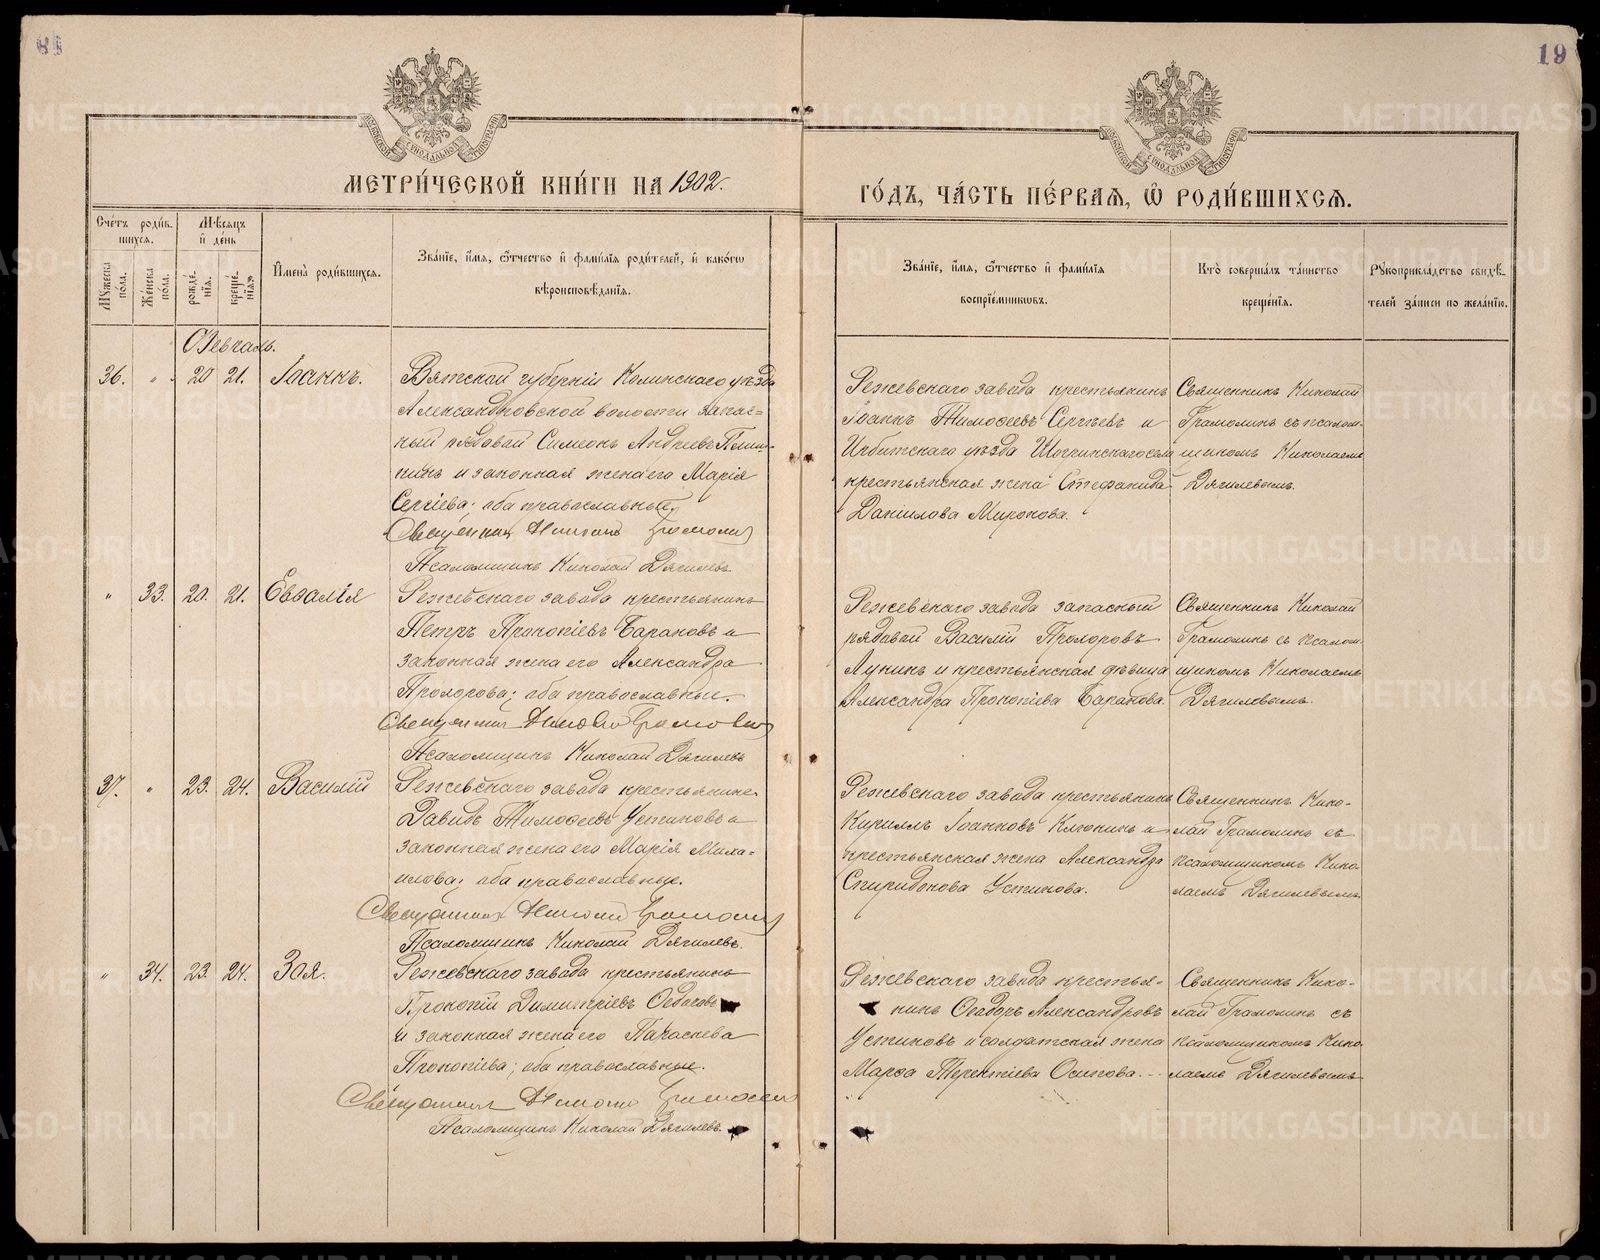 19
МОСКОВСКОЙ СѴНОДАЛЬНОЙ ТИПОГРАФІИ
МОСКОВСКОЙ СѴНОДАЛЬНОЙ ТИПОГРАФІИ
МЕТРИ́ЧЕСКОЙ КНИ́ГИ НА 1902.
ГО́ДЪ, ЧА́СТЬ ПЕ́РВАЯ, Ѽ РОДИ́ВШИХСЯ.
Сче́тъ роди́в-
шихся.
Му́жеска по́ла.
Же́нска по́ла.
Мѣ́сяцъ и де́нь
рожде́нія.
креще́нія.
Имена̀ роди́вшихся.
Зва́ніе, и́мя, ѻ́тчество и фами́лія роди́телей, и како́гѡ
вѣроисповѣ́данія.
Зва́ніе, и́мя, ѻ́тчество и фами́лія
воспріе́мникѡвъ.
Кто̀ соверша́лъ та́инство
креще́нія.
Рукоприкла́дство свидѣ́-
телей за́писи по жела́нію.
Февраль.
36. " 20 21. Іоаннъ.
Вятской губерніи уѣзда
Александровской волости запас-
ный рядовой Симеонъ Андреевъ
и законная жена его Марія
Сергіева; оба православные.
Священникъ Николай Грамолинъ
Псаломщикъ Николай Дягилевъ.
Режевскаго завода крестьянинъ
Іоаннъ Тимофеевъ Сергѣевъ и
Ирбитскаго уѣзда Шогринскаго села
крестьянская жена Стефанида
Данилова Миронова.
Священникъ Николай
Грамолинъ съ псалом-
щикомъ Николаемъ
Дягилевымъ.
" 33. 20. 21. Евѳалія
Режевскаго завода крестьянинъ
Петръ Прокопіевъ Барановъ и
законная жена его Александра
Прохорова; оба православные.
Священникъ Николай Грамолинъ
Псаломщикъ Николай Дягилевъ
Режевскаго завода запасный
рядовой Василій Прохоровъ
Лукинъ и крестьянская дѣвица
Александра Прокопіева Баранова.
Священникъ Николай
Грамолинъ съ псалом-
щикомъ Николаемъ
Дягилевымъ.
37. " 23. 24. Василій
Режевскаго завода крестьянинъ
Давидъ Тимофеевъ Устиновъ и
законная жена его Марія Миха-
илова; оба православные.
Священникъ Николай Грамолинъ
Псаломщикъ Николай Дягилевъ.
Режевскаго завода крестьянинъ
Кириллъ Іоанновъ Клюкинъ и
крестьянская жена Александра
Спиридонова Устинова.
Священникъ Нико-
лай Грамолинъ съ
псаломщикомъ Нико-
лаемъ Дягилевымъ.
" 34. 23. 24. Зоя.
Режевскаго завода крестьянинъ
Прокопій Димитріевъ
и законная жена его Параскева
Прокопіева; оба православные.
Священникъ Николай Грамолинъ
Псаломщикъ Николай Дягилевъ.
Режевскаго завода крестья-
нинъ Ѳеодоръ Александровъ
Устиновъ и солдатская жена
Марѳа Терентіева Осипова.
Священникъ Нико-
лай Грамолинъ съ
псаломщикомъ Нико-
лаемъ Дягилевымъ
METRIKI.GASO-URAL.RU